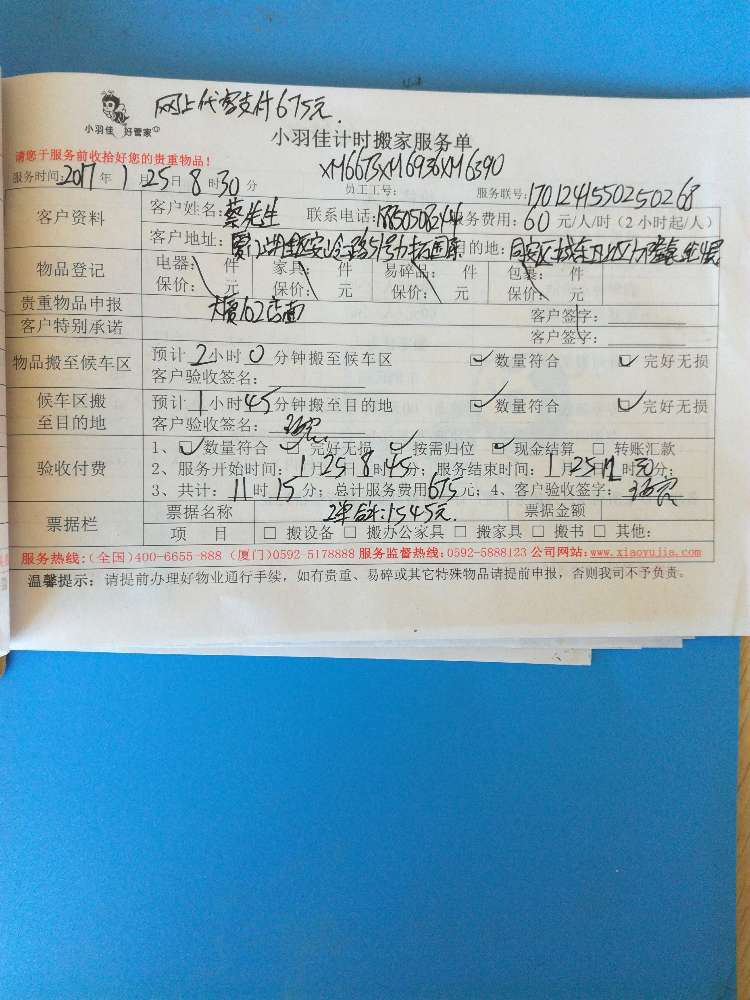 网上代客支付675元.
小羽佳 好管家
小羽佳计时搬家服务单
请您于服务前收拾好您的贵重物品！
XM6673XM6936XM6390
服务时间：2017年1月25日8时30分 员工工号： 服务联号：1701241550250268
客户资料 客户姓名：蔡先生 联系电话： 务费用：60元/人/时（2小时起/人）
客户地址： 目的地：同安区
物品登记 电器： 件 家具： 件 易碎品： 件 包裹： 件
保价： 元 保价： 元 保价： 元 保价： 元
贵重物品申报 大厦102店面 客户签字：
客户特别承诺 客户签字：
物品搬至候车区 预计2小时0分钟搬至候车区 数量符合 完好无损
客户验收签名：
候车区搬至目的地 预计1小时45分钟搬至目的地 数量符合 完好无损
客户验收签名：
验收付费 1、数量符合 完好无损 按需归位 现金结算 □ 转账汇款
2、服务开始时间：1月25日8时45分；服务结束时间：1月25日12时00分；
3、共计：11时15分；总计服务费用675元；4、客户验收签字：
票据栏 票据名称 2单合计：1545元. 票据金额
项 目 □ 搬设备 □ 搬办公家具 □ 搬家具 □ 搬书 □ 其他：
服务热线：（全国）400-6655-888（厦门）0592-5178888 服务监督热线：0592-5888123 公司网站：www.xiaoyujia.com
温馨提示：请提前办理好物业通行手续，如有贵重、易碎或其它特殊物品请提前申报，否则我司不予负责。